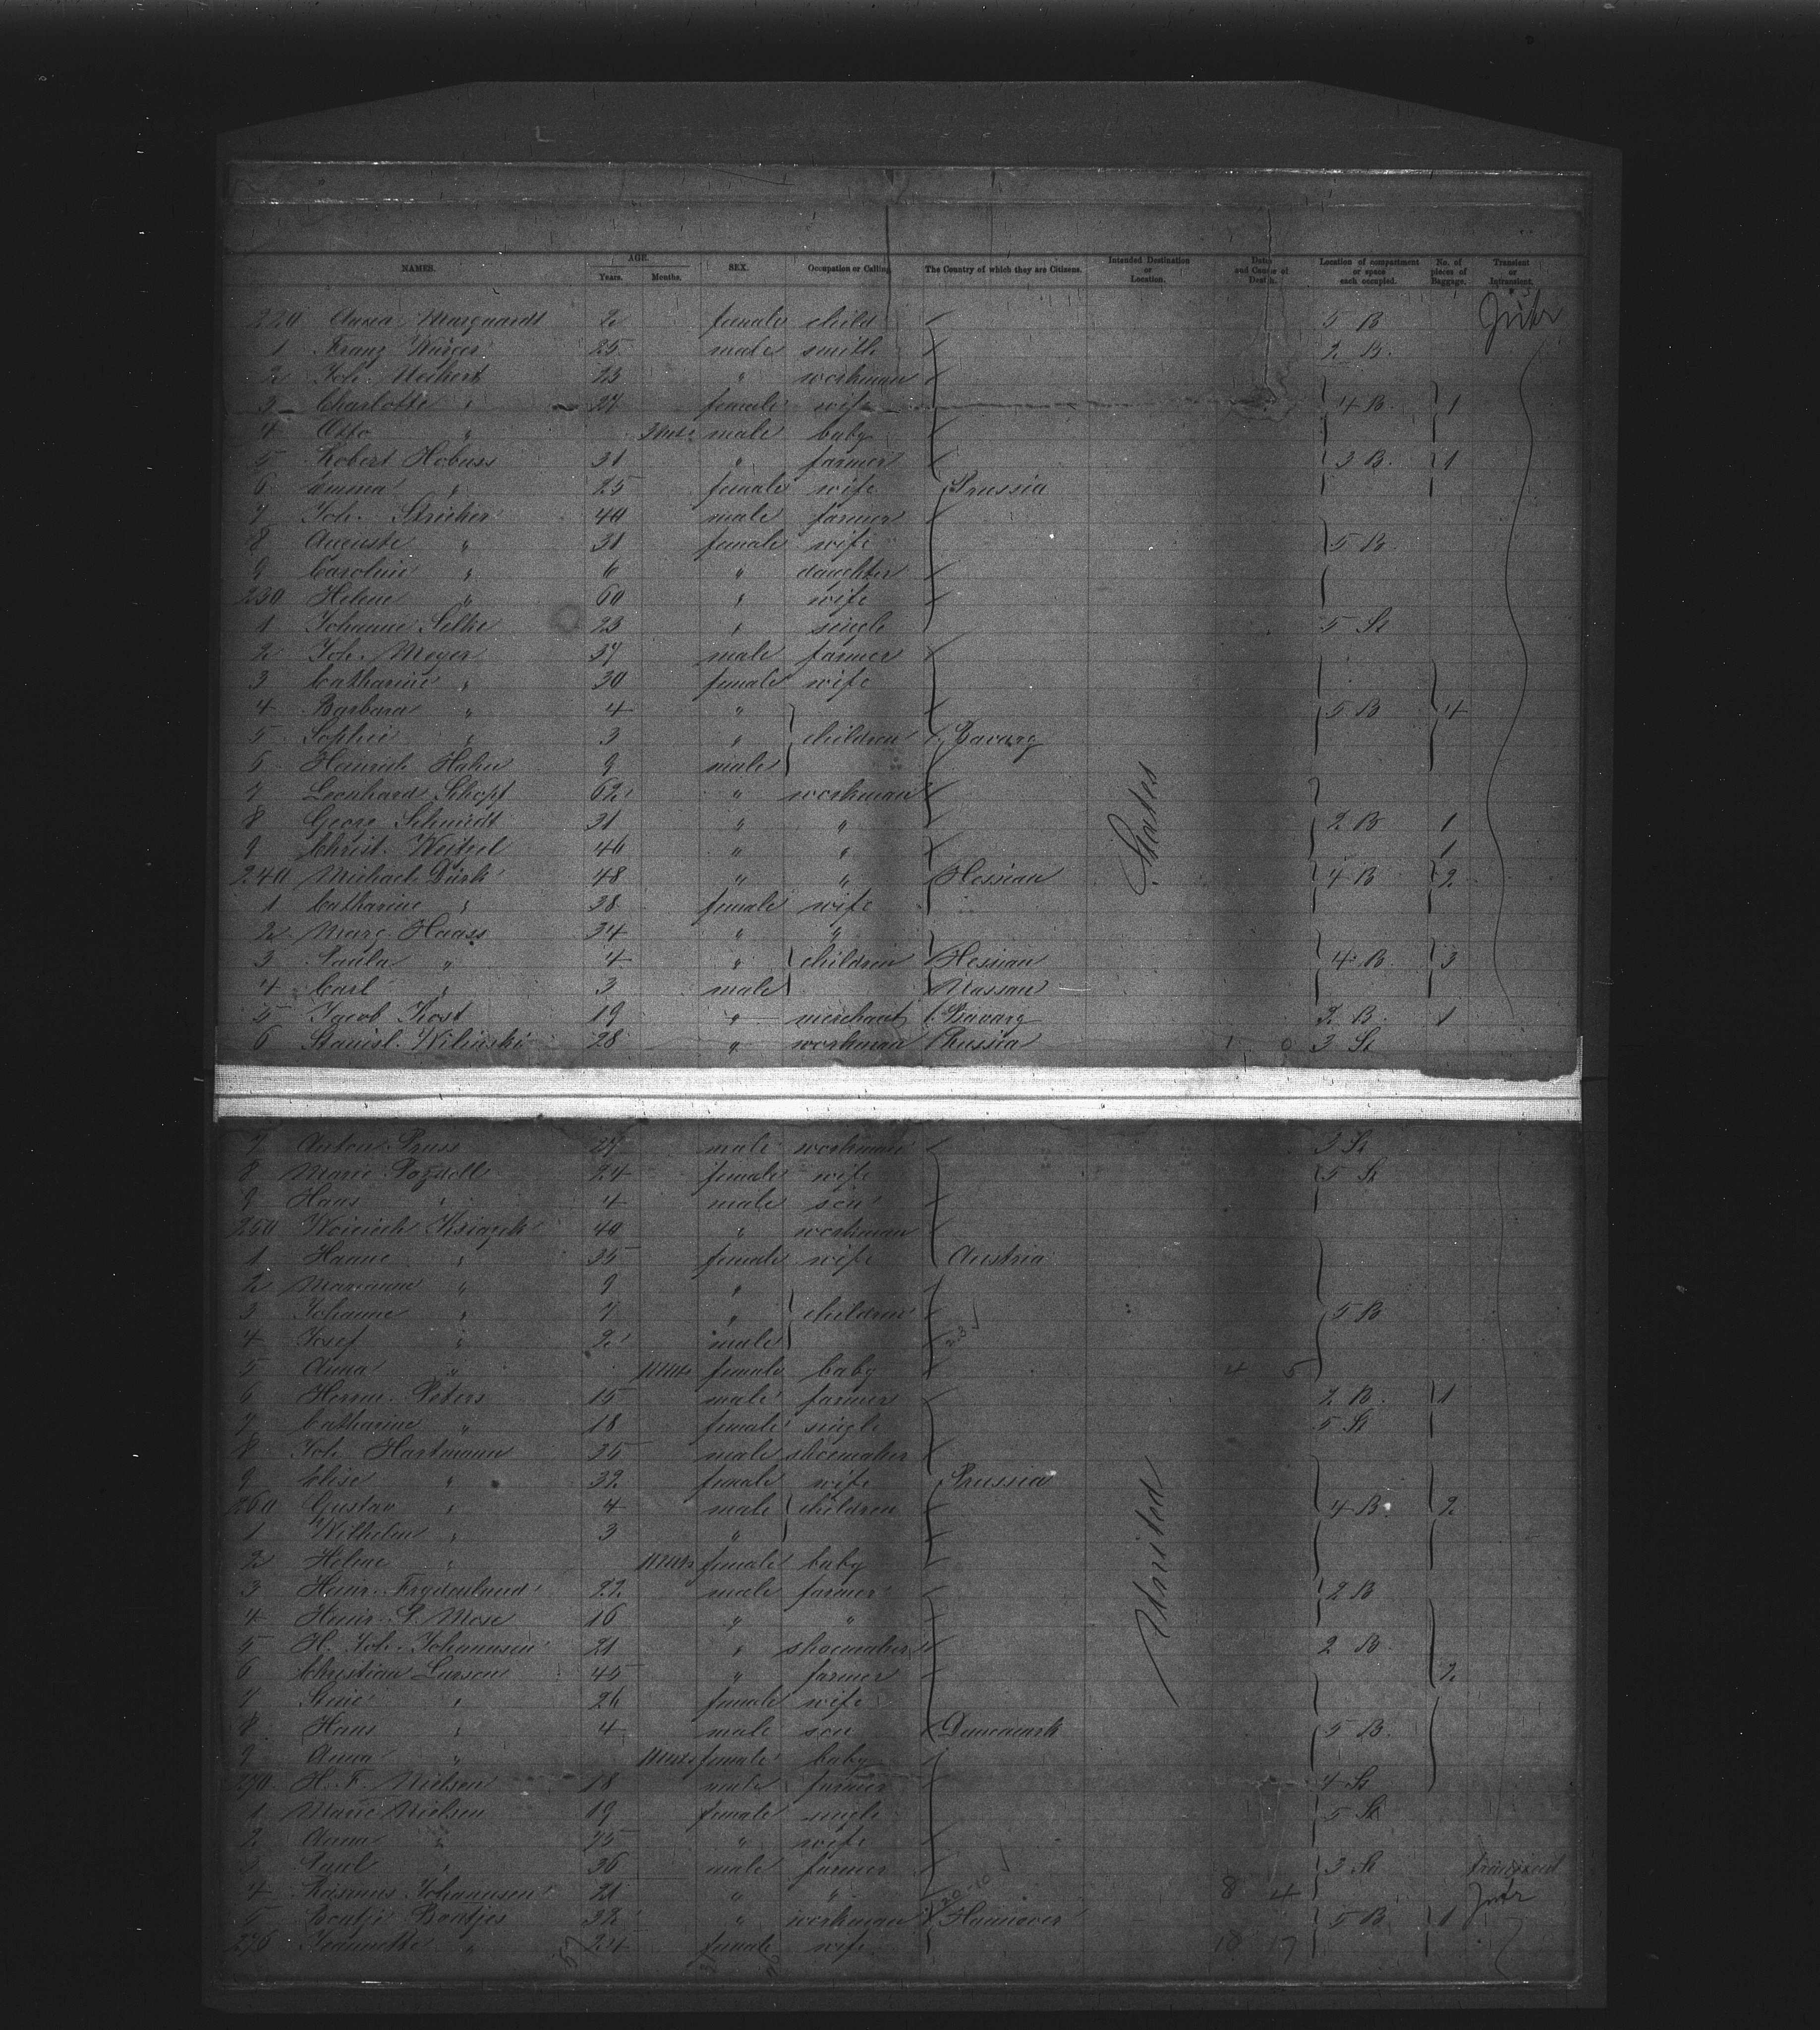 NAMES. AGE. Years. Months. SEX. Occupation or Calling The Country of which they are Citizens. Intended Destination or Location. Date and Cause of Death. Location of compartment or space each occupied. No. of pieces of Baggage. Transient or Intransient.
220 Anna Marquardt 2 female child 5 B
1 Franz 25 male smith 2 B.
2 Joh. 23 " workman
3 Charlotte " 27 female wife 4 B. 1
4 Otto " male baby
5 Robert Hobuss 31 " farmer 3 B. 1
6 Emma " 25 female wife Prussia
7 Joh. Stricker 40 male farmer
8 Auguste " 31 female wife 5 B
9 Caroline " " daughter
230 Helene " 60 " wife
1 Johanne Selke 23 " single 5 St
2 Joh. Meyer 37 male farmer
3 Catharine " 30 female wife
4 Barbara " 4 " 5 B 4
5 Sophie " 3 " children Bavarg
6 Heinrich Hahn 9 male
7 Leonhard Schopf 62 " workman
8 Georg Schmidt 31 " " 2 B 1
9 Christ. Weitzel 46 " " 1
240 Michael Dürk 48 " " Hessian 4 B 2
1 Catharine " 38 female wife
2 Marg. Haass 34 " "
3 Paula " 4 " children Hessian 4 B. 3
4 Carl " 3 male Nassau
5 Jacob Kost 19 " merchant Bavarg 2 B. 1
6 Stanisl. Wilinski 28 " workman Russia 1 0 3 St
States
7 Anton Pruss 27 male workman 3 St
8 Marie 24 female wife 5 St
9 Hans " 4 male son
250 40 " workman
1 Hanne " 35 female wife Austria
2 Mariane " 9 "
3 Johanne " 7 " children 5 B
4 Josef " 2 male
5 Anna " female baby 4 5
6 Herm. Peters 15 male farmer 2 B. 1
7 Catharine " 18 female single 5 St
8 Joh. Hartmann 35 male shoemaker
9 Elise " 32 female wife Prussia
260 Gustav " 4 male children 4 B. 2
1 Wilhelm " 3 "
2 Helene " female baby
3 Heinr. Frydenlund 22 male farmer 2 B
4 Heinr. P. Mose 16 " "
5 H. Joh. Johannsen 21 " shoemaker 2 B.
6 Christian Larsen 45 " farmer 2
7 Stine " 26 female wife
8 Hans " 4 male son Denemark 5 B.
9 Anna " female baby
270 H. F. Nielsen 18 male farmer 4 St
1 Marie Nielsen 19 female single 5 St
2 Anna " 25 " wife
3 " 36 male farmer 3 St transient
4 Rasmus Johannsen 21 " " 8 4
5 Bontje Bontjes 32 " workman Hannover 5 B. 1
276 Jeannette " 24 female wife 10 17
United